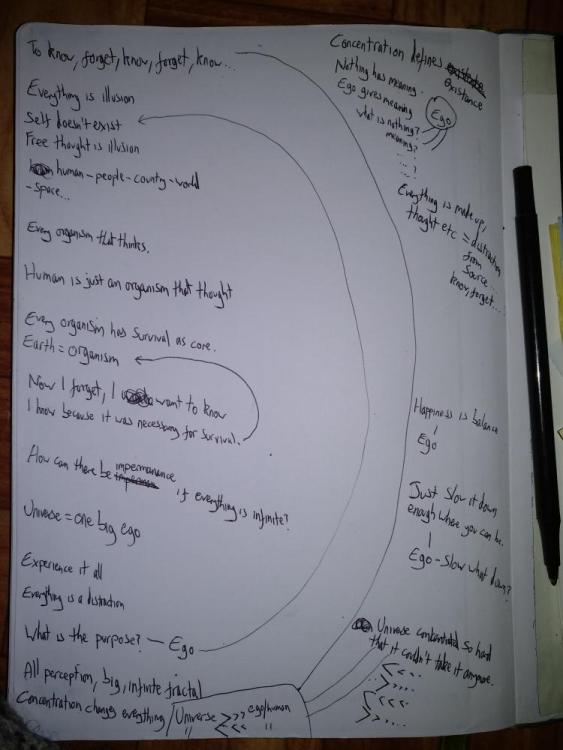 To know, forget, know, forget, know...
Everything is illusion
Self doesn't exist
Free thought is illusion
human - people - county - world
- space...
Every organism that thinks.
Human is just an organism that thought
Every organism has survival as core.
Earth = organism
Now I forget, I want to know
I know because it was necessary for survival.
How can there be impermanence
if everything is infinite?
Universe = one big ego
Experience it all
Everything is a distraction
What is the purpose? - Ego
All perception, big, infinite fractal
Concentration changes everything / Universe >>> ego/human
" <<< "
Concentration defines
existance
Nothing has meaning.
Ego gives meaning
Ego
what is nothing?
meaning?
...?
...?
Everything is made up,
thought etc = distraction
from
source...
know, forget...
Happiness is balance
|
Ego
Just slow it down
enough where you can be.
|
Ego - Slow what down?
Universe concentrated so hard
that it couldn't take it anymore.
<<...
>>...
<<<...
>>...